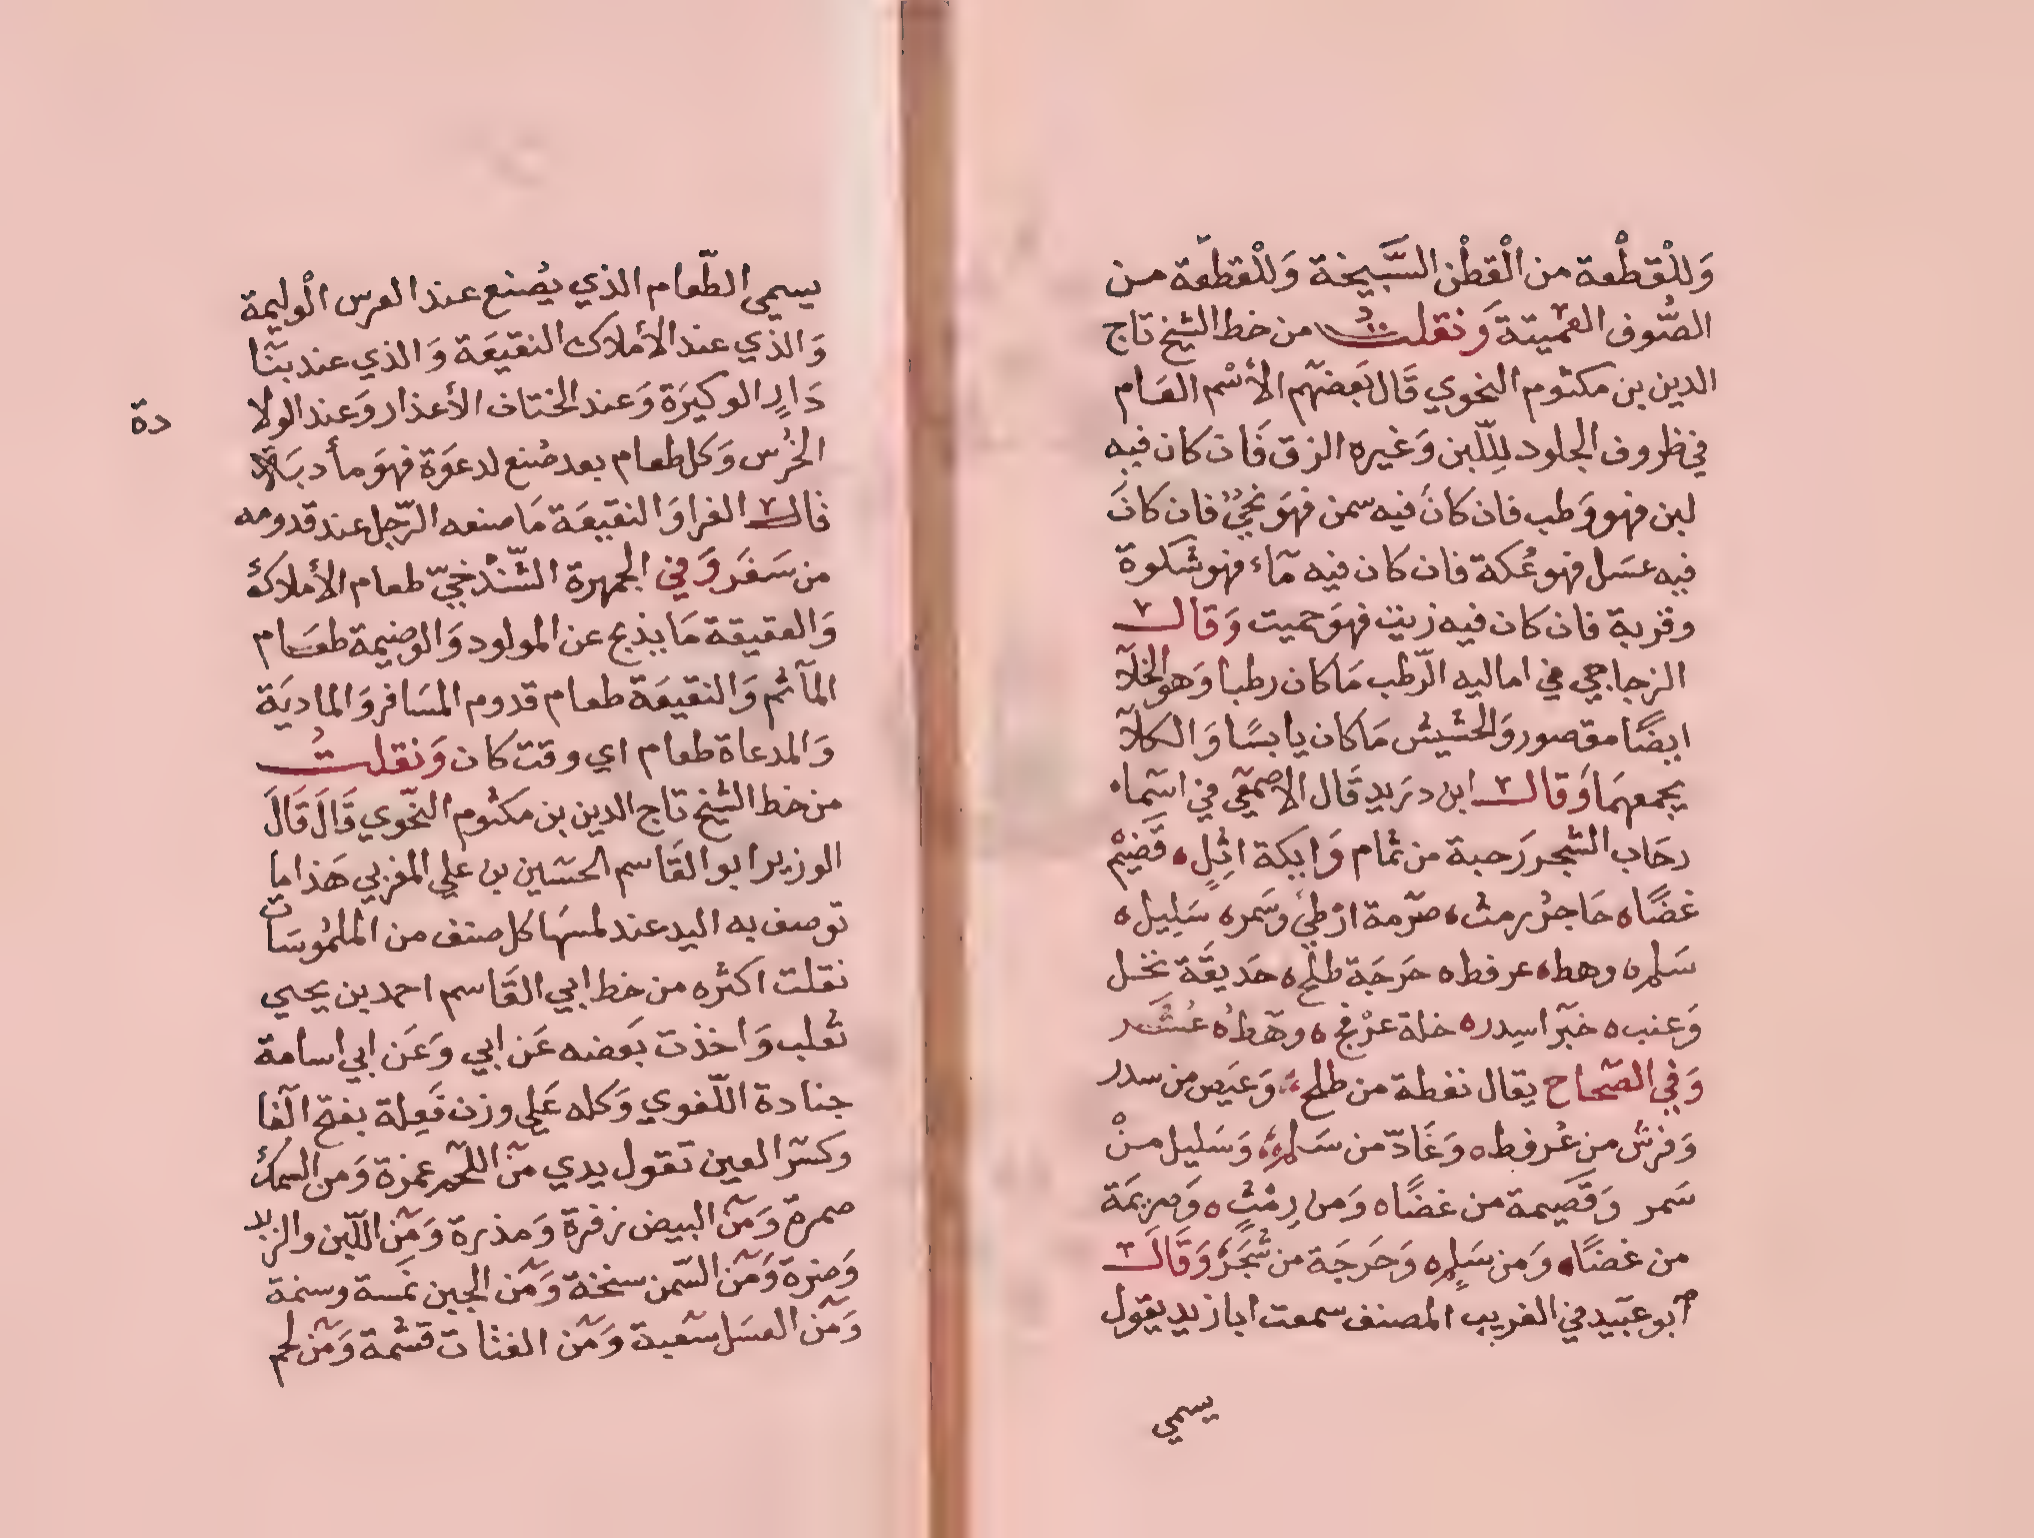 وَللْقطْعة من الْقطْن السَّبيخة وَللْقطعَة من
الصُّوف العَميتة وَنقلتُ من خط الشيخ تاج
الدين بن مكتوم النحوي قَال بَعضهم الأسْم العَام
في ظروف الجلود لِلّبن وَغيره الزق فَان كان فيه
لبن فهو وَطب فان كانَ فيه سمن فهوَ نحيٌ فان كانَ
فيه عسَل فهو عُكة فان كان فيه مَاء فهو شكوة
وقربة فان كان فيه زيت فهوَ حميت وَقال
الزجاجي في اماليه الرّطب مَا كان رطبا وَهو الخلآ
ايضًا مقصور وَالحشيش مَا كان يابسًا وَالكلآ
يجمعهمَا وَقال ابن دريد قَال الاصمعي في اسمَاء
رحَاب الشجر رَحبة من ثمام وَايكة اثلٍ قَضيم
غضًا حَاجرُ رمث صرّمة ارْطى وَسَمر سَليل
سَلم وهط عرفط حَرجَة طلح حَديقَة نخل
وَعنب خبرَا سِدر خلة عرْفج وهَطُ عُشَر
وَفي الصّحاح يقال نفطة من طلح وَعيَص من سدر
وَفرش من عُرفط وَغَالّ من سَلم وَسَليل منْ
سَمر وَقَصِيمة من غضًا وَمن رِمْثٍ وَصريمَة
من غضًا وَمن سَلِم وَحَرجَة من شَجَر وَقَالَ
أبو عبَيد في الغريب المصنف سمعت ابا زيد يقول
يسمي
يسمي الطّعام الذي يُصْنع عند العرس الْوليمة
وَالذي عند الأملاك النقيعَة وَالذي عند بنَا
دَارٍ الوكيرَة وَعند الختان الأعذار وَعند الولا
دة
الخُرْس وَكل طعام بعد صُنع لدعوَة فهوَ مأدبَة
قال الفرا وَالنقيعَة مَا صنعه الرّجل عند قدومه
من سَفَر وَفي الجمهرة الشّنْدخيّ طعام الأملاك
وَالعقيقة مَا يذبح عن المولود وَالوضيمة طعَام
المآتم وَالنقيعَة طعام قدوم المسَافر وَالمادبَة
وَالمدعاة طعام اي وقت كان وَنقلتُ
من خط الشيخ تاج الدين بن مكتوم النّحوي قَالَ قَالَ
الوزير ابو القَاسم الحسَين بن علي المغربي هَذا ما
توصف به اليد عند لمسهَا كل صنف من الملموُسَات
نقلت اكثره من خط ابي القَاسم احمد بن يحيي
ثعلب وَاخذت بَعضه عَن ابي وَعَن ابي اسامة
جنادة اللّغوي وَكله عَلي وزن فَعِلة بفتح الفا
وكسْر العين تقول يدي منَ اللّحم غمزة وَمن السمك
صمرة وَمنَ البيض زفرة وَمذرة وَمنَ اللّبن والزبد
وَضرة وَمنَ السّمن سنخة وَمنَ الجبن نمسة وسنمة
وَمنَ العسَل سعَبة وَمنَ القثا ت قثمة وَمنَ لحم